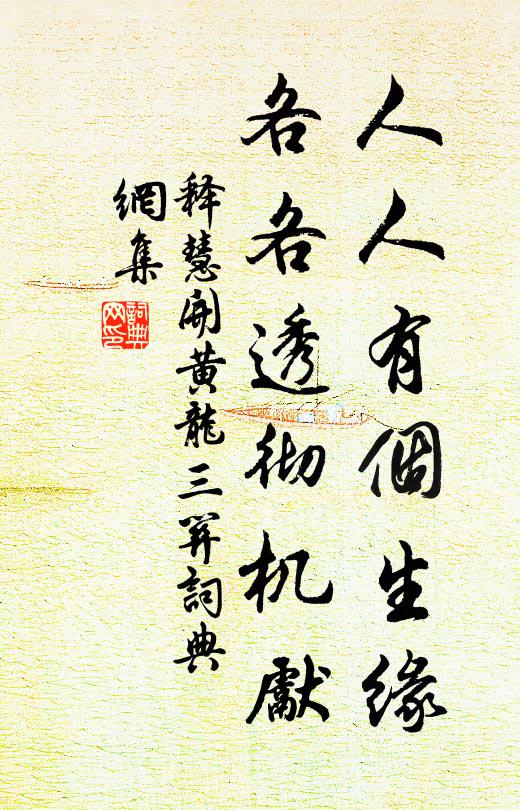 人人有個生緣
各各透彻机獻
释慧開黃龍三關詞典
網集
詞典
网印